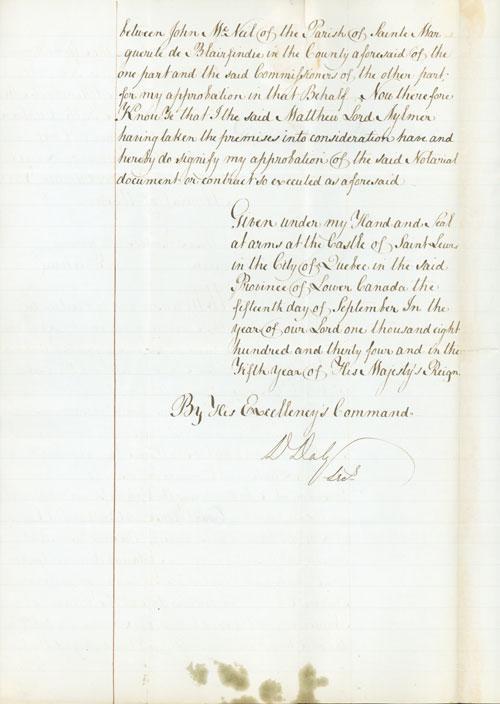 between John Mc Neil of the Parish of Sainte Mar
guerite de Blairfindie in the County aforesaid of the
one part and the said Commissioners of the other part
for my approbation in that Behalf Now therefore
Know Ye that I the said Matthew Lord Aylmer
having taken the premises into consideration have and
hereby do signify my approbation of the said Notarial
document or contract so executed as aforesaid
Given under my Hand and Seal
at arms at the Castle of Saint Lewis
in the City of Quebec in the said
Province of Lower Canada the
fifteenth day of September In the
year of our Lord one thousand eight
hundred and thirty four and in the
Fifth Year of His Majesty's Reign
By His Excellency's Command.
D Daly
Secy